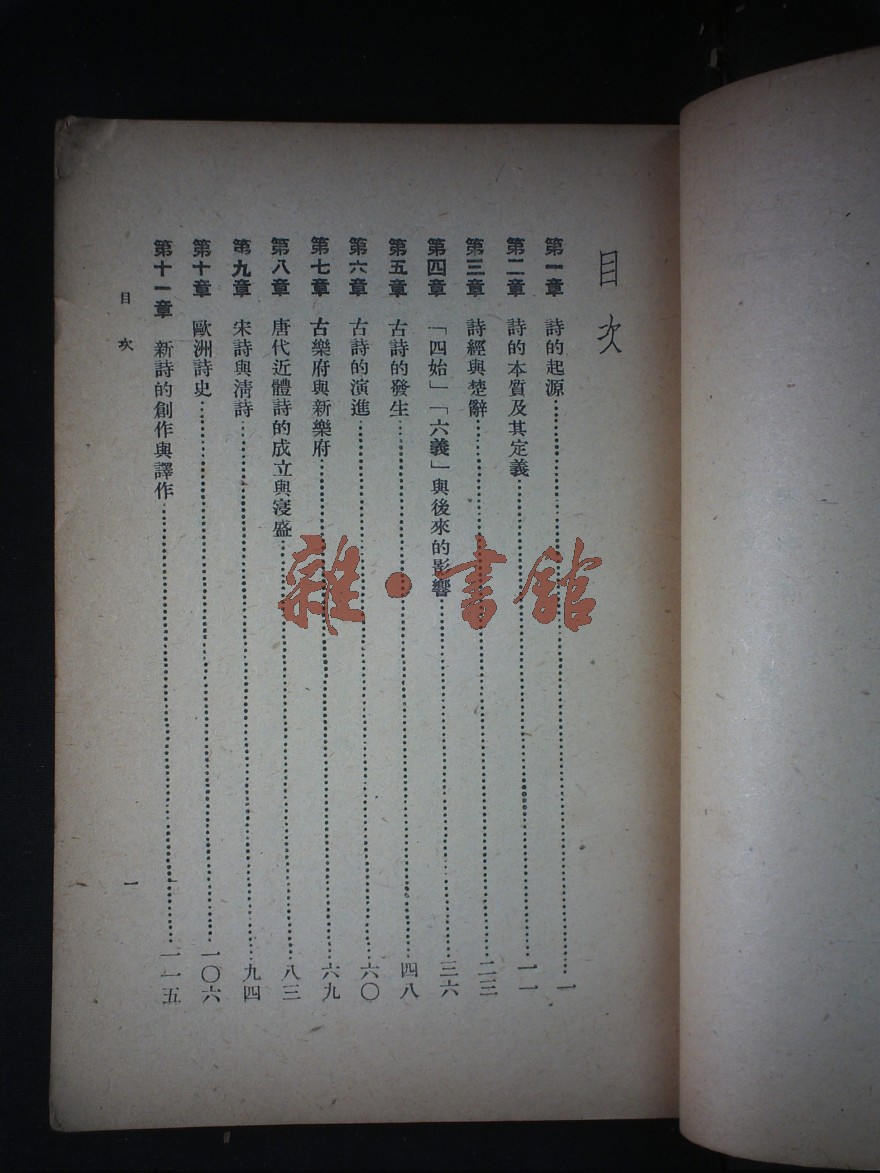 目次
第一章 詩的起源……一
第二章 詩的本質及其定義……一一
第三章 詩經與楚辭……二三
第四章 「四始」「六義」與後來的影響……三六
第五章 古詩的發生……四八
第六章 古詩的演進……六〇
第七章 古樂府與新樂府……六九
第八章 唐代近體詩的成立與寖盛……八三
第九章 宋詩與清詩……九四
第十章 歐洲詩史……一〇六
第十一章 新詩的創作與譯作……一一五
目次 一
雜·書館